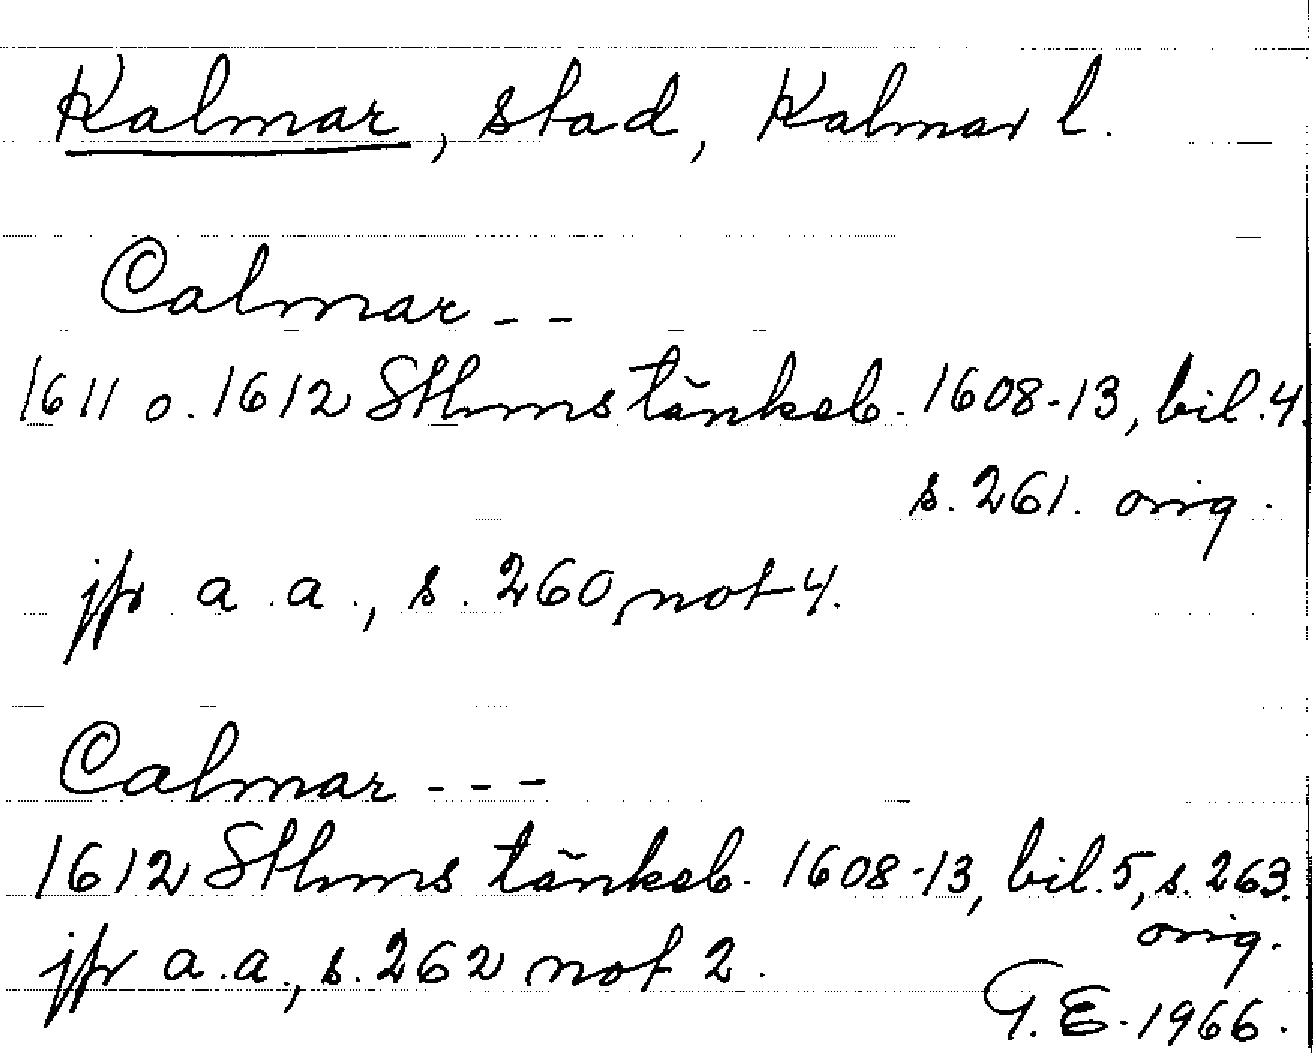 Kalmar, stad, Kalmar l.
Calmar - -
1611 o. 1612 Sthms tänkeb. 1608-13, bil. 4.
s. 261. orig.
jfr a.a., s. 260, not 4.
Calmar - - -
1612 Sthms tänkeb. 1608-13, bil. 5, s. 263.
orig.
jfr a.a., s. 262 not 2.
G.E. 1966.